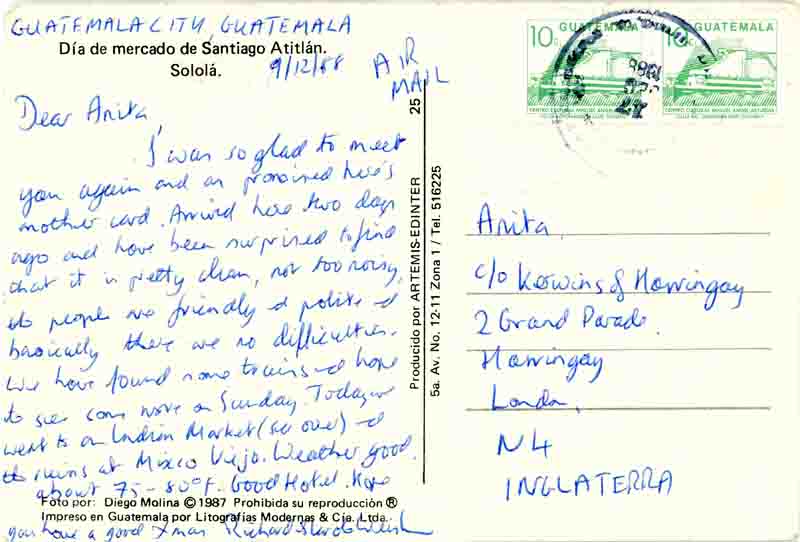 GUATEMALA CITY, GUATEMALA
Día de mercado de Santiago Atitlán.
Sololá.
9/12/88
AIR
MAIL
Dear Anita,
I was so glad to meet
you again and as promised here's
another card. Arrived here two days
ago and have been surprised to find
that it is pretty clean, not too noisy,
the people are friendly & polite &
basically there are no difficulties.
We have found some trains & hope
to see some more on Sunday. Today we
went to an Indian Market (see over) &
the ruins at Mixco Viejo. Weather good.
about 75-80°F. Good Hotel. Hope
Foto por: Diego Molina © 1987 Prohibida su reproducción ®
Impreso en Guatemala por Litografías Modernas & Cía. Ltda.
you have a good Xmas Richard
25
Producido por ARTEMIS-EDINTER
5a. Av. No. 12-11 Zona 1 / Tel. 516225
10c GUATEMALA
GUATEMALA
Anita,
c/o Kerwins of Harringay
2 Grand Parade,
Harringay
London,
N4
INGLATERRA